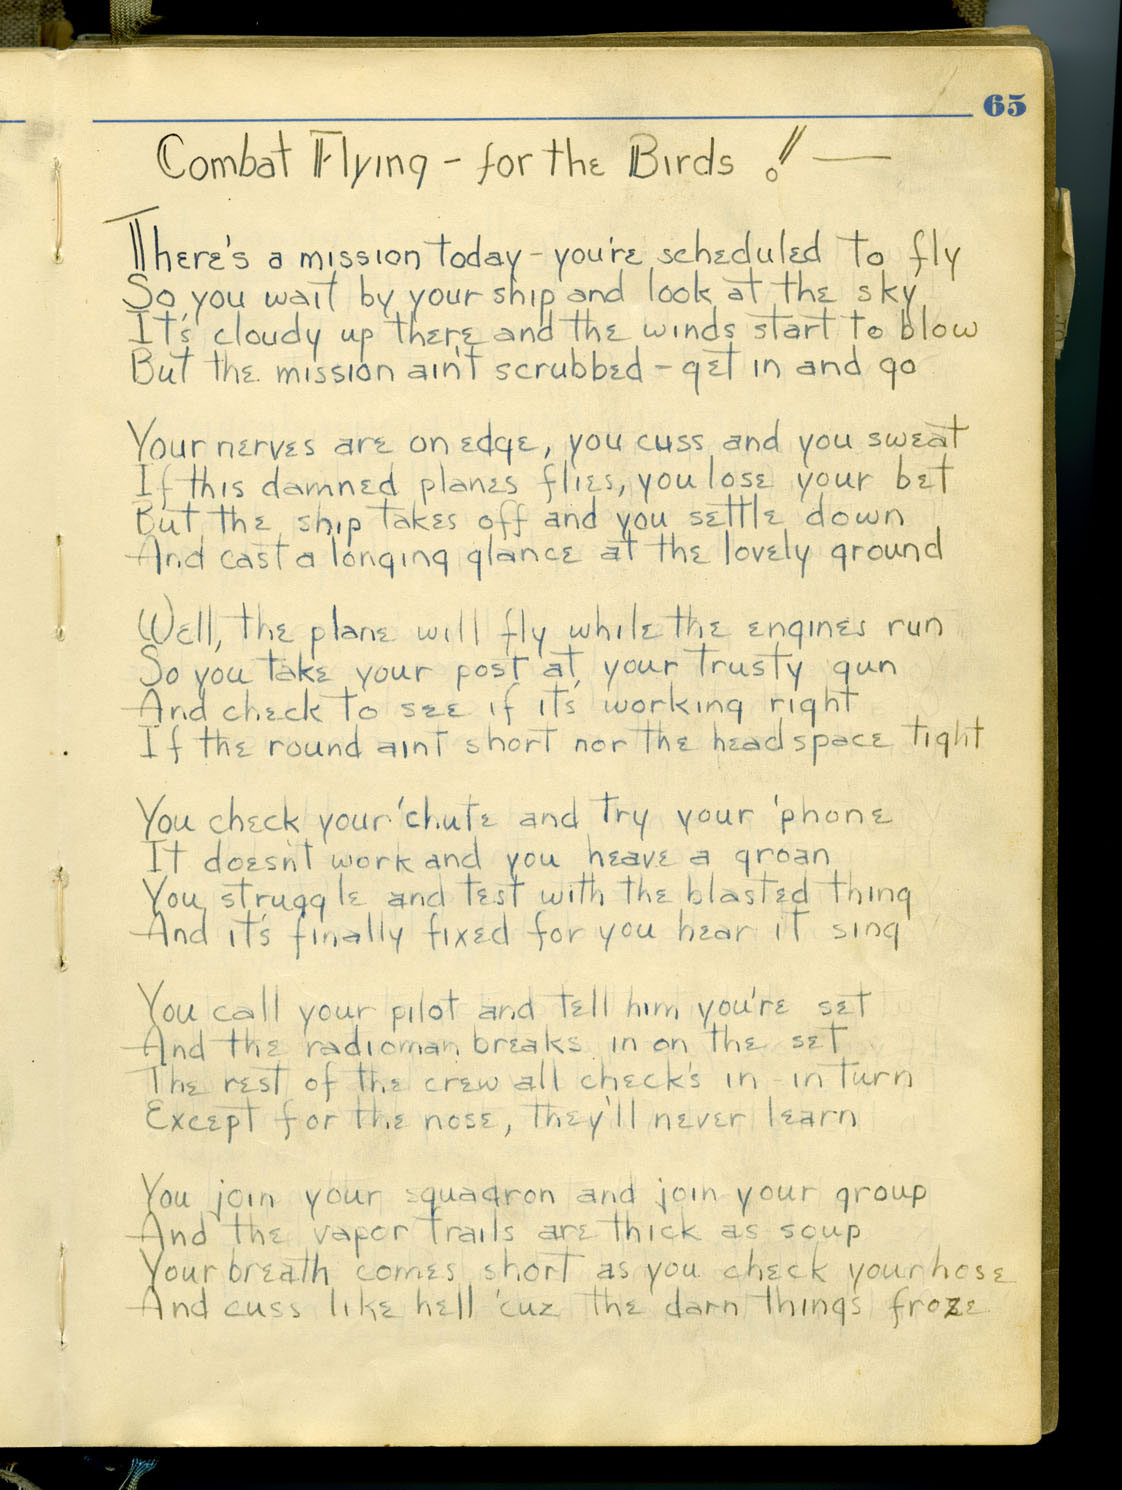 65
Combat Flying - for the Birds ! —
There's a mission today - you're scheduled to fly
So you wait by your ship and look at the sky
It's cloudy up there and the winds start to blow
But the mission ain't scrubbed - get in and go
Your nerves are on edge, you cuss and you sweat
If this damned planes flies, you lose your bet
But the ship takes off and you settle down
And cast a longing glance at the lovely ground
Well, the plane will fly while the engines run
So you take your post at your trusty gun
And check to see if it's working right
If the round aint short nor the headspace tight
You check your 'chute and try your 'phone
It doesn't work and you heave a groan
You struggle and test with the blasted thing
And it's finally fixed for you hear it sing
You call your pilot and tell him you're set
And the radioman breaks in on the set
The rest of the crew all check's in - in turn
Except for the nose, they'll never learn
You join your squadron and join your group
And the vapor trails are thick as soup
Your breath comes short as you check your hose
And cuss like hell 'cuz the darn things froze